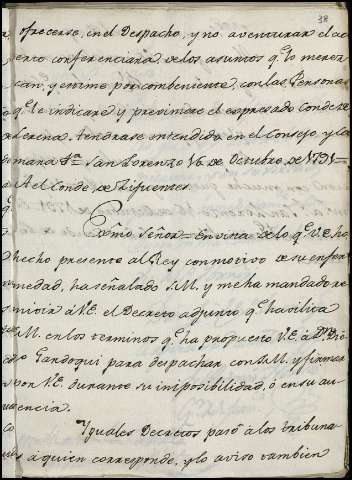 38
ofrecerse, en el Despacho, y no aventurar el ac
ierto conferenciara, de los asuntos q.e lo merez
can, y estime por combeniente, con las Personas
q.e le indicare y previniere el expresado Conde de
Lerena. Tendrase entendido en el Consejo, y la
Camara S.n San Lorenzo 16. de Octubre, de 1791=
Al Conde, de Cifuentes.
Exmo Señor= En vista de lo q.e V.E. ha
hecho presente al Rey con motivo de su enfer
medad, ha señalado S.M. y me ha mandado re
mitir á V.E. el Decreto adjunto q.e havilita
S.M. en los terminos q.e ha propuesto V.E. á D.n Die
go Gardoqui para despachar, con S.M. y firmar
por V.E. durante su imposibilidad, ó en su au
sencia.
Iguales Decretos pasó á los tribuna
les á quien corresponde, y lo aviso tambien